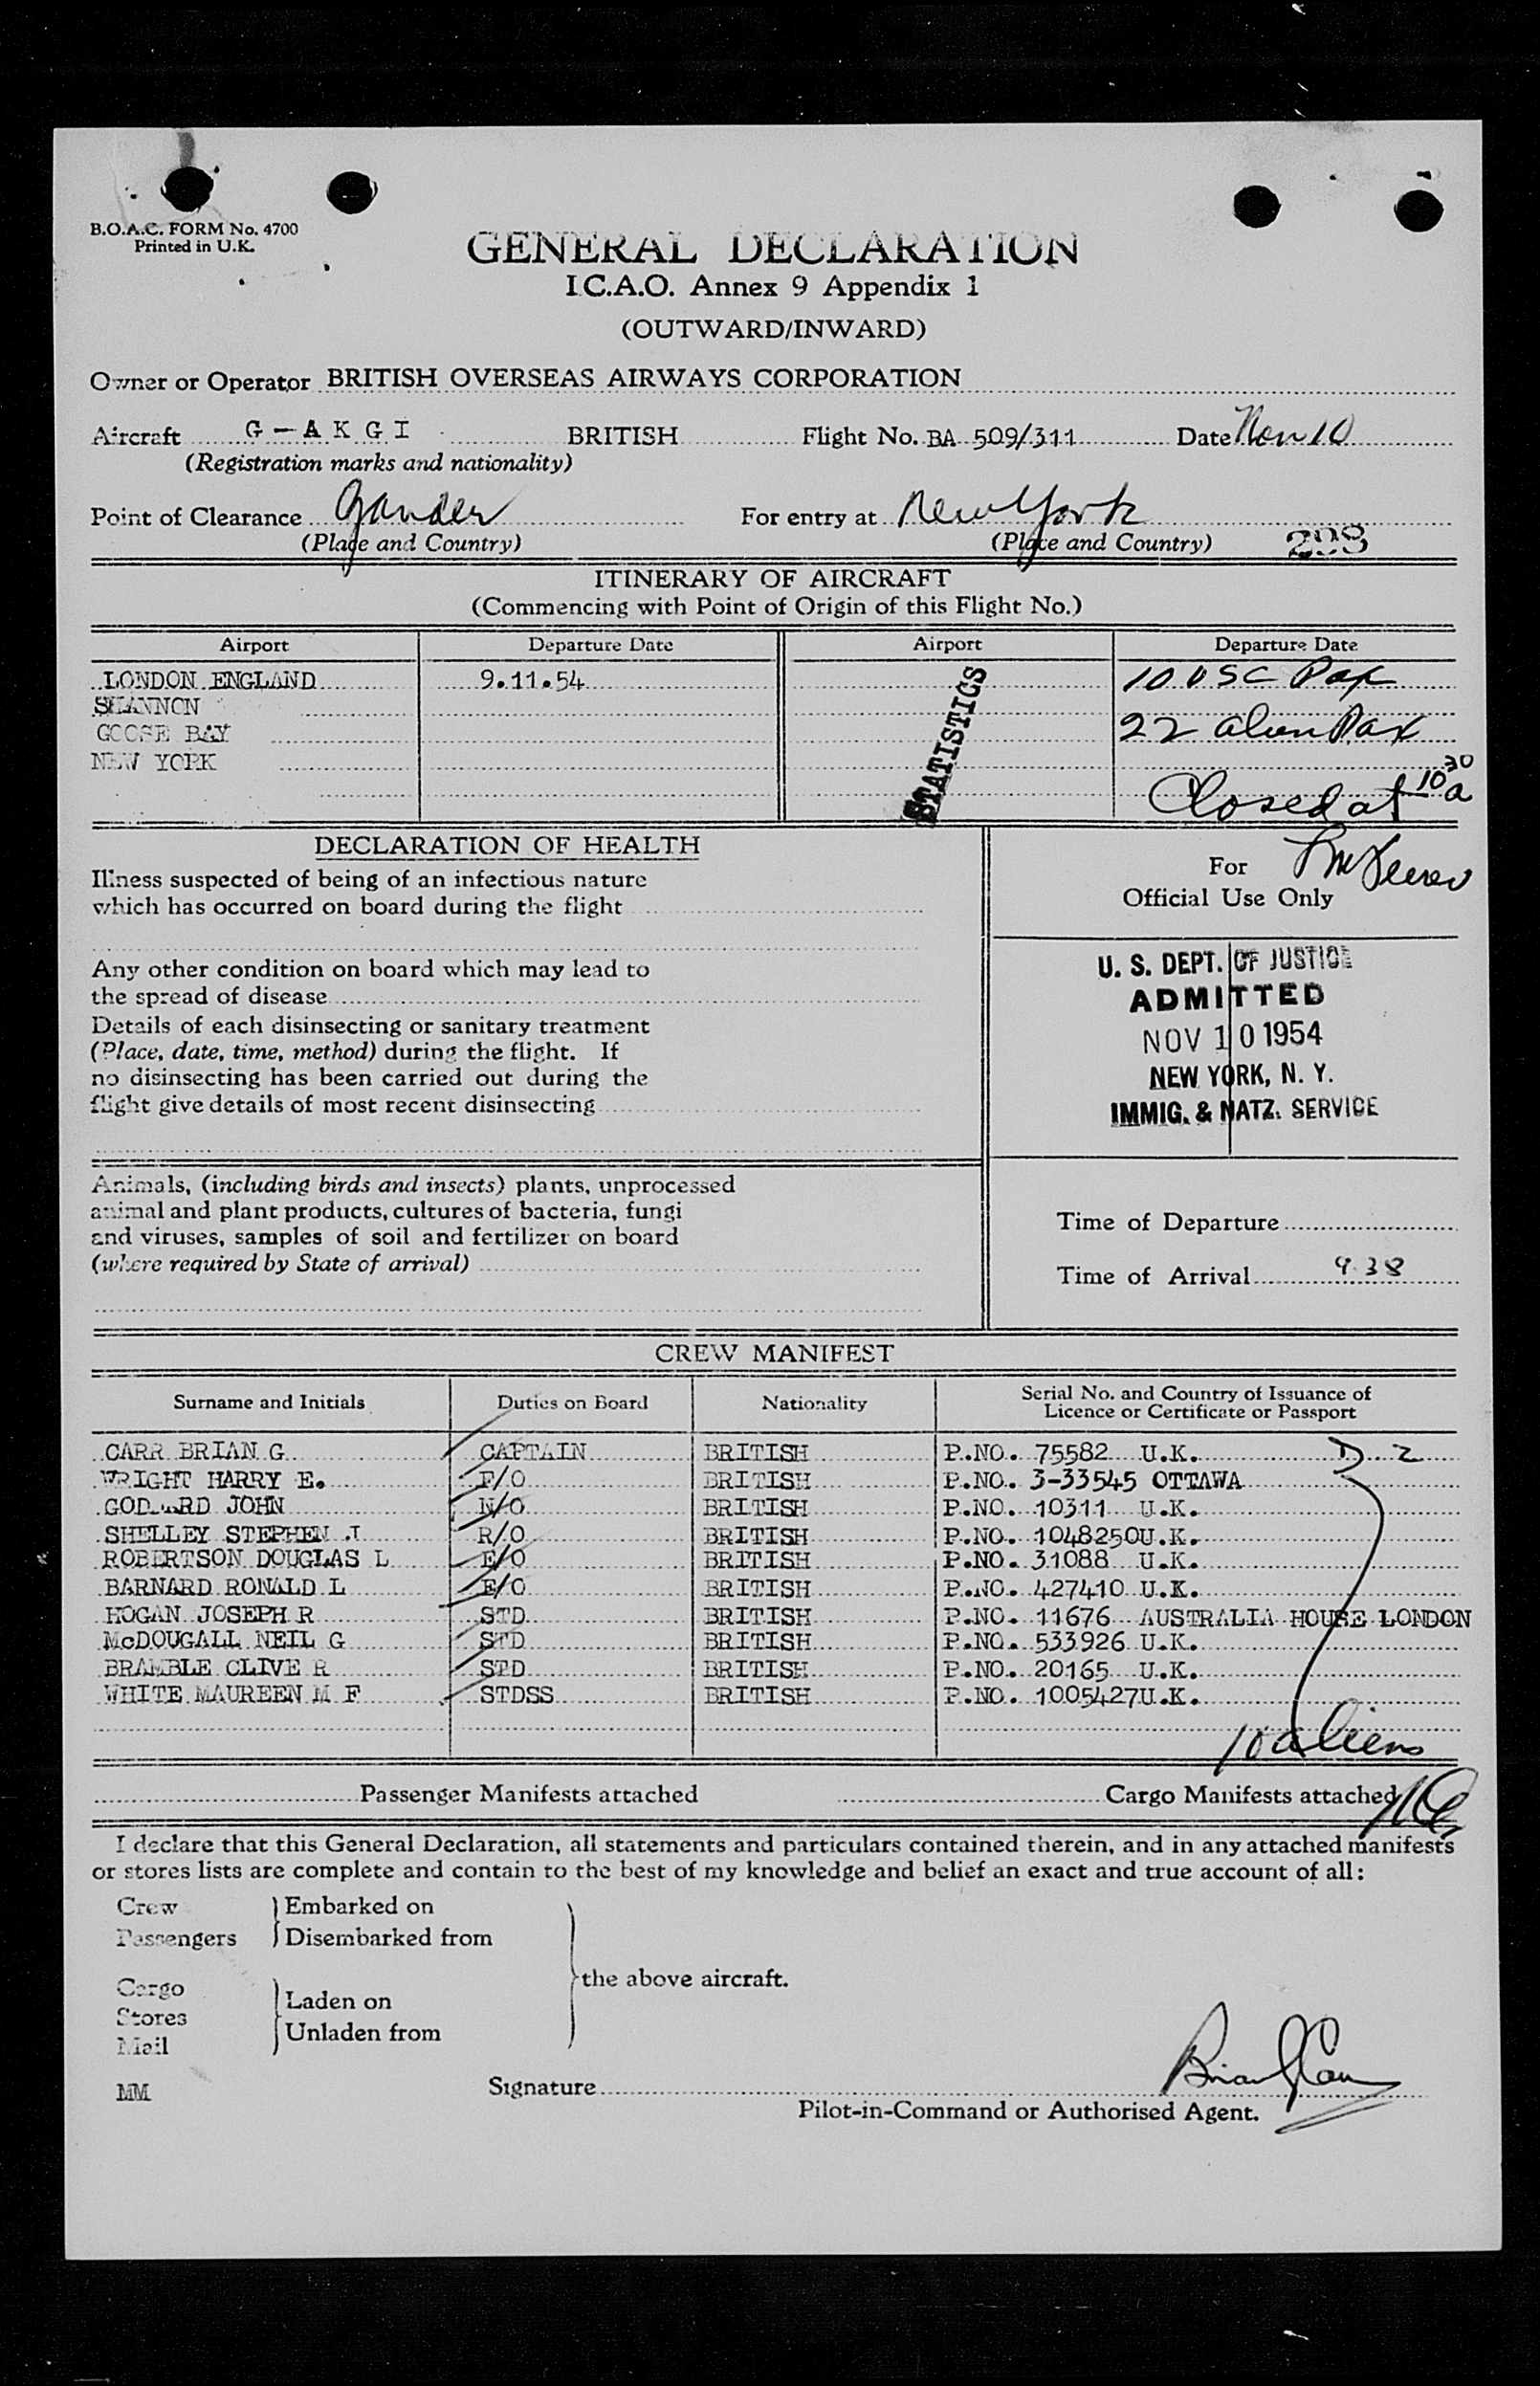 B.O.A.C. FORM No. 4700
Printed in U.K.
GENERAL DECLARATION
I.C.A.O. Annex 9 Appendix 1
(OUTWARD/INWARD)
Owner or Operator BRITISH OVERSEAS AIRWAYS CORPORATION
Aircraft G-AKGI BRITISH Flight No. BA 509/311 Date Nov 10
(Registration marks and nationality)
Point of Clearance Gander For entry at New York
(Place and Country) (Place and Country) 298
ITINERARY OF AIRCRAFT
(Commencing with Point of Origin of this Flight No.)
Airport Departure Date Airport Departure Date
LONDON ENGLAND 9.11.54 10 USC Pax
SHANNON
GOOSE BAY 22 alien Pax
NEW YORK
STATISTICS
Closed at 10 30 a
DECLARATION OF HEALTH
Illness suspected of being of an infectious nature
which has occurred on board during the flight
For
Official Use Only
Any other condition on board which may lead to
the spread of disease
Details of each disinsecting or sanitary treatment
(Place, date, time, method) during the flight. If
no disinsecting has been carried out during the
flight give details of most recent disinsecting
U. S. DEPT. OF JUSTICE
ADMITTED
NOV 10 1954
NEW YORK, N. Y.
IMMIG. & NATZ. SERVICE
Animals, (including birds and insects) plants, unprocessed
animal and plant products, cultures of bacteria, fungi
and viruses, samples of soil and fertilizer on board
(where required by State of arrival)
Time of Departure
Time of Arrival 9 38
CREW MANIFEST
Surname and Initials Duties on Board Nationality Serial No. and Country of Issuance of
Licence or Certificate or Passport
CARR BRIAN G CAPTAIN BRITISH P.NO. 75582 U.K. D 2
WRIGHT HARRY E. F/O BRITISH P.NO. 3-33545 OTTAWA
GODDARD JOHN N/O BRITISH P.NO. 10311 U.K.
SHELLEY STEPHEN J R/O BRITISH P.NO. 1048250U.K.
ROBERTSON DOUGLAS L E/O BRITISH P.NO. 31088 U.K.
BARNARD RONALD L E/O BRITISH P.NO. 427410 U.K.
HOGAN JOSEPH R STD BRITISH P.NO. 11676 AUSTRALIA HOUSE LONDON
McDOUGALL NEIL G STD BRITISH P.NO. 533926 U.K.
BRAMBLE CLIVE R STD BRITISH P.NO. 20165 U.K.
WHITE MAUREEN M F STDSS BRITISH P.NO. 1005427U.K.
10 aliens
Passenger Manifests attached Cargo Manifests attached
I declare that this General Declaration, all statements and particulars contained therein, and in any attached manifests
or stores lists are complete and contain to the best of my knowledge and belief an exact and true account of all:
Crew Embarked on
Passengers Disembarked from
the above aircraft.
Cargo
Stores Laden on
Mail Unladen from
MM Signature Brian G Carr
Pilot-in-Command or Authorised Agent.